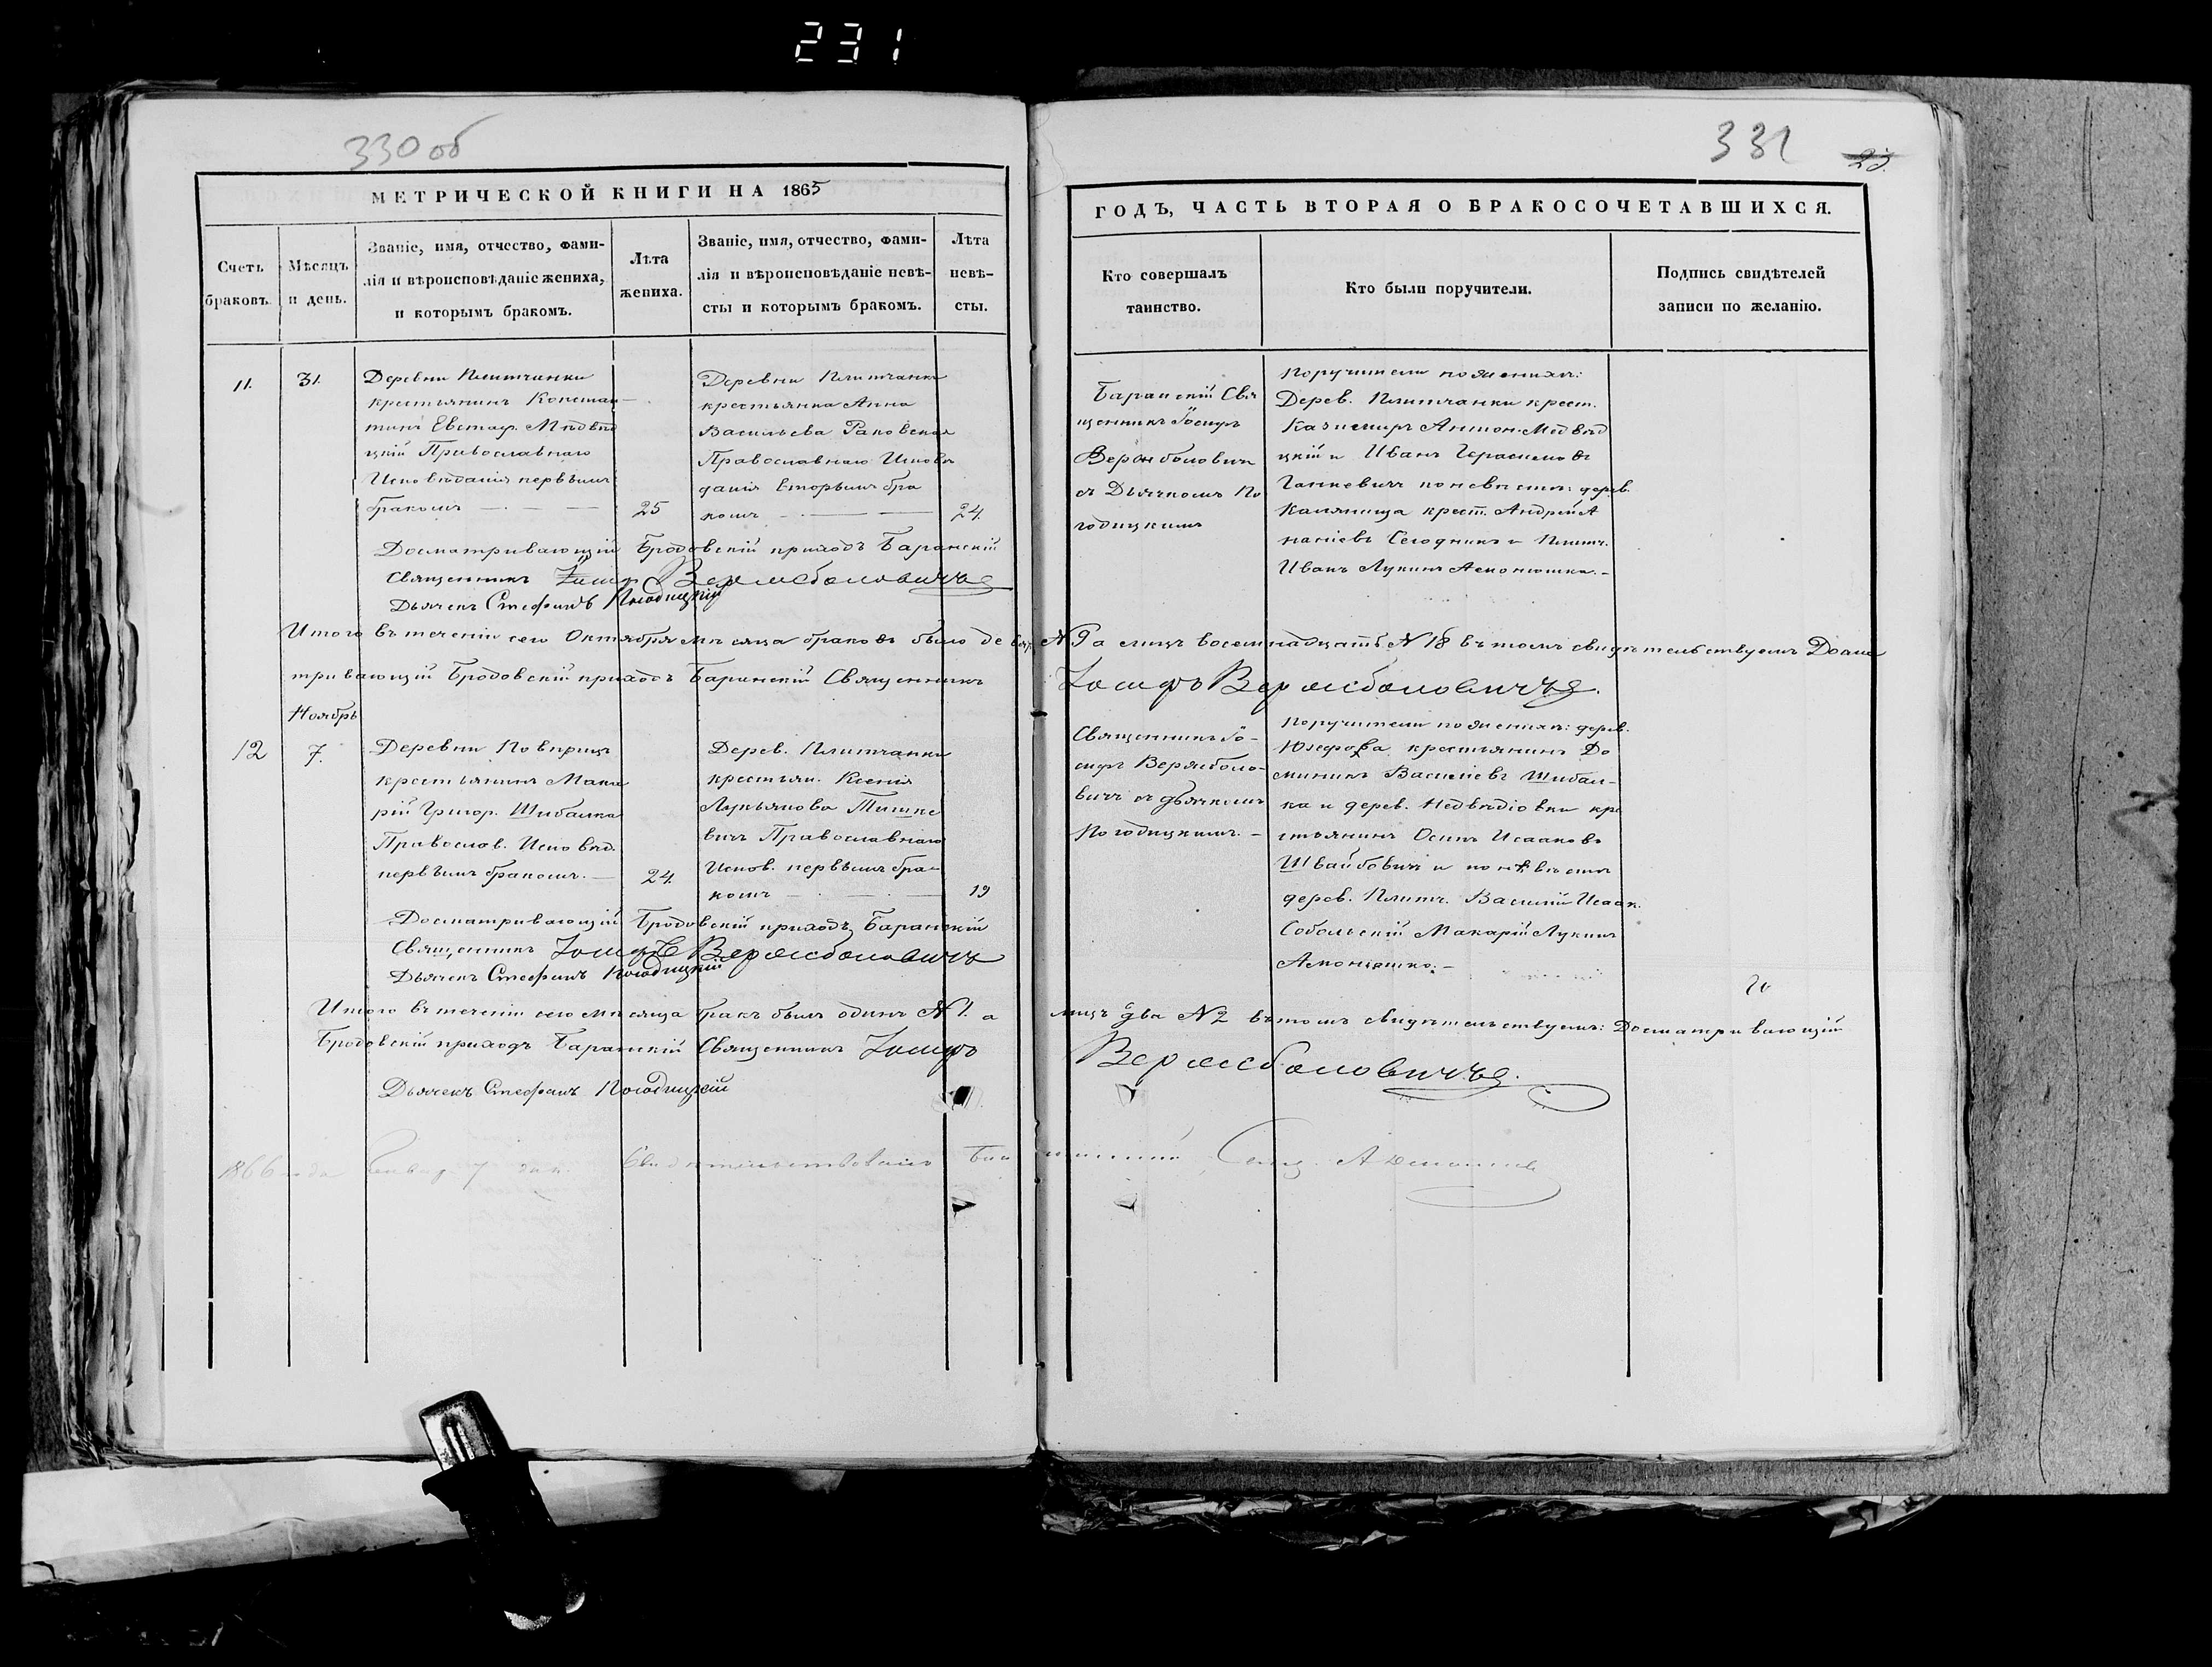 231
330 об
МЕТРИЧЕСКОЙ КНИГИ НА 1865
Счетъ браковъ.
Мѣсяцъ и день.
Званіе, имя, отчество, фами-
лія и вѣроисповѣданіе жениха,
и которымъ бракомъ.
Лѣта
жениха.
Званіе, имя, отчество, фами-
лія и вѣроисповѣданіе невѣ-
сты и которымъ бракомъ.
Лѣта
невѣ-
сты.
11.
31.
Деревни Плитчанки
крестьянинъ Констан-
тинъ Евстаф. Мѣдвѣд
цкій Православнаго
Исповѣданія первымъ
бракомъ
25
Деревни Плитчанки
крестьянка Анна
Васильева Раковская
Православнаго Исповѣ
данія вторымъ бра
комъ
24.
Досматривающій Бродовскій приходъ Баранскій
Священникъ Іосифъ Вержболовичъ
Дьячекъ Стефанъ Погодицкій
Итого въ теченіи сего Октября мѣсяца браковъ было девят.
тривающій Бродовскій приходъ Баранскій Священникъ
Ноябрь
12
7.
Деревни
крестьянинъ Мака
рій Григор. Шибалка
Православ. Исповѣд.
первымъ бракомъ.
24.
Дерев. Плитчанки
крестьян. Ксенія
Лукьянова Тишке
вичъ Православнаго
Испов. первымъ бра-
комъ
19
Досматривающій Бродовскій приходъ Баранскій
Священникъ Іосифъ Вержболовичъ
Дьячекъ Стефанъ Погодицкій
Итого въ теченіи сего мѣсяца бракъ былъ одинъ N 1. а
Бродовскій приходъ Баранскій Священникъ Іосифъ
Дьячекъ Стефанъ Погодицкій
1866 года Январ. 7 дня. Свидѣтельствовалъ
331
23.
ГОДЪ, ЧАСТЬ ВТОРАЯ О БРАКОСОЧЕТАВШИХСЯ.
Кто совершалъ
таинство.
Кто были поручители.
Подпись свидѣтелей
записи по желанію.
Баранскій Свя
щенникъ Іосифъ
Вержболовичъ
съ Дьячкомъ По
годицкимъ
Поручители по женихѣ:
Дерев. Плитчанки крест.
Казимиръ Антон. Медвѣд
цкій и Иванъ Герасимовъ
Ганкевичъ по невѣстѣ: дерев.
крест. Андрей А
наніевъ и Плитч.
Иванъ Лукинъ Асмонюшко.
N 9 а лицъ восемнадцать N 18 въ томъ свидѣтельствуемъ Досма
Іосифъ Вержболовичъ.
Священникъ Іо-
сифъ Вержболо-
вичъ съ дьячкомъ
Погодицкимъ.
Поручители по женихѣ: дерев.
Юзефова крестьянинъ До
миникъ Василіевъ Шибал-
ка и дерев. Недвѣдіовки кре
стьянинъ Осипъ Исааковъ
Швайбовичъ и по невѣстѣ
дерев. Плитч. Василій Исаак.
Собольскій Макарій Лукинъ
Асмонюшко.
лицъ два N 2 въ томъ свидѣтельствуемъ: Досматривающій
Вержболовичъ.